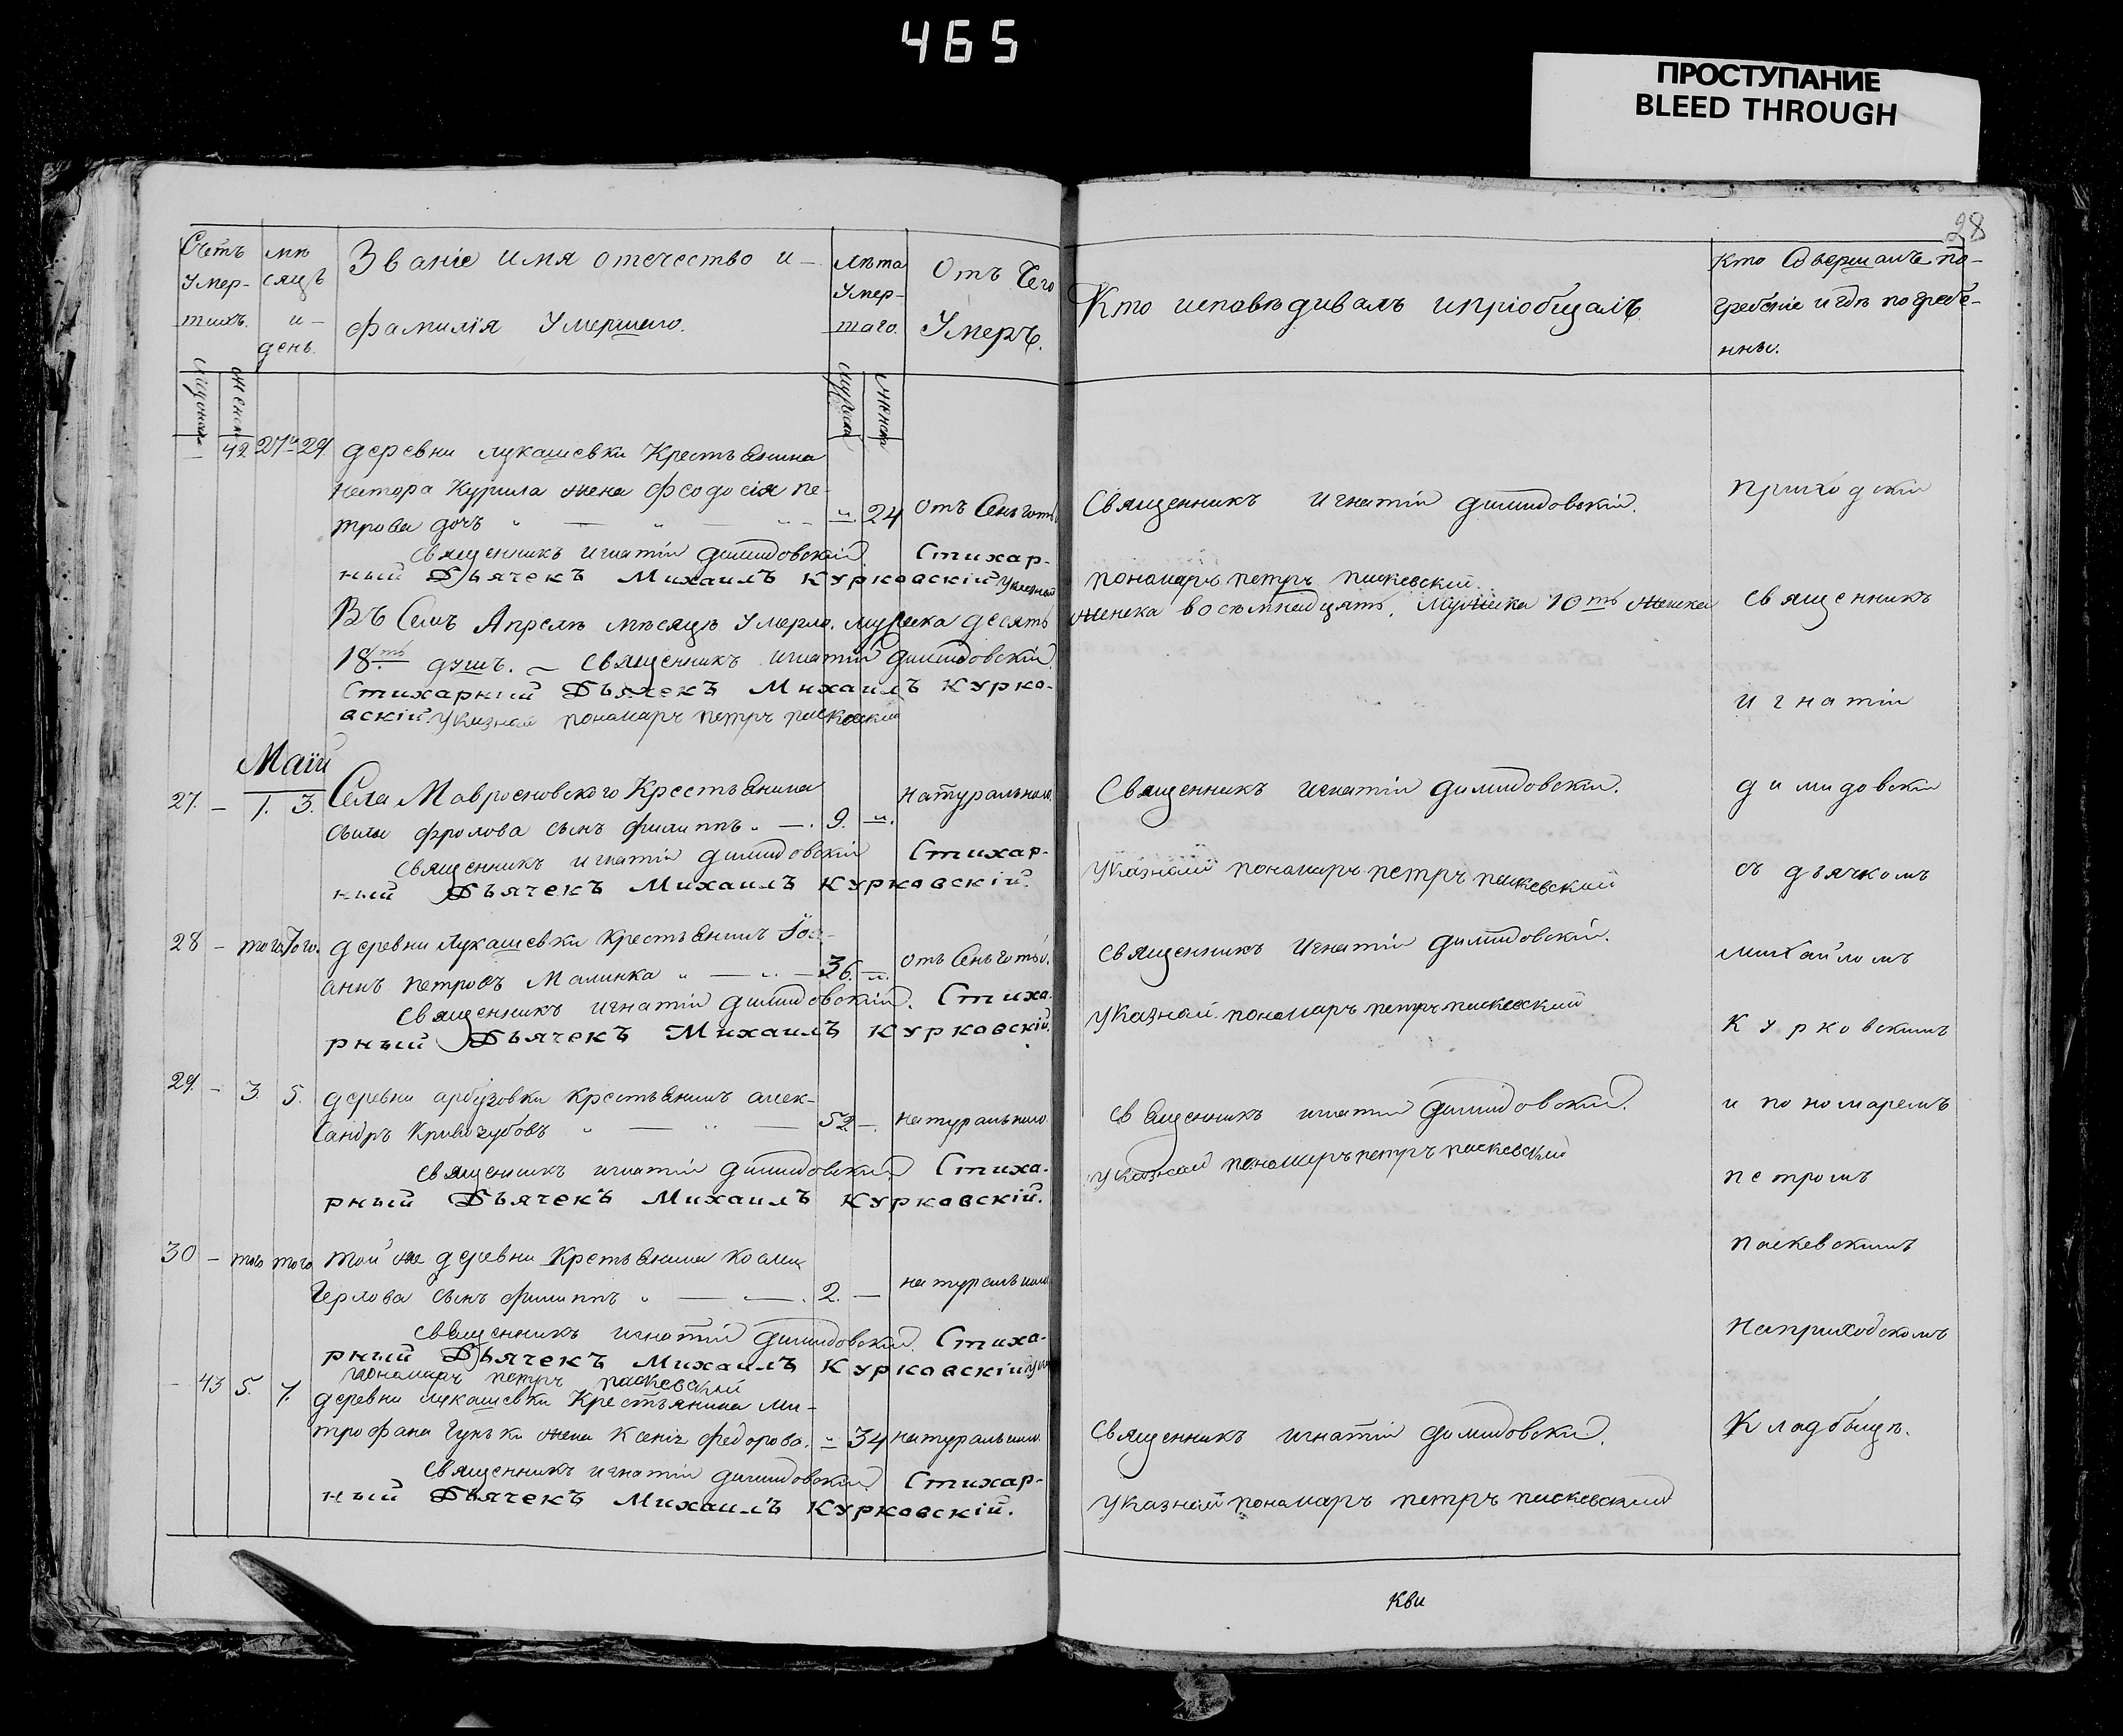 465
ПРОСТУПАНИЕ
BLEED THROUGH
28
Счетъ Умер-шихъ.
мѣсяцъ и день.
Званіе имя отечество и фамилія Умершаго.
лѣта Умер-шаго.
Отъ Чего Умеръ.
Кто исповѣдивалъ и пріобщалъ.
Кто Совершалъ по-
гребеніе и гдѣ погребе-
нны.
женск
мужеск
женск
42 27 29 деревни лукашевки Крестьянина
Нестора Курила жена Феодосія пе-
трова дочъ 24 отъ
Священникъ Игнатій димидовскій.
приходскій
Священникъ игнатій димидовскій. Стихар-
ный Дьячекъ Михаилъ Курковскій Указный
пономарь петръ паскевскій
Въ Семъ Апрелѣ мѣсяцѣ Умерло. мужеска десять
женска восѣмнадцять. Мужеска 10ть женска
священникъ
18ть душъ. — Священникъ игнатій димидовскій.
Стихарный Дьячекъ Михаилъ Курко-
вскій. Указной пономарь петръ паскевскій
игнатій
Маій
27. – 1. 3. Села Мавросновского Крестьянина
Силы фролова сынъ филиппъ 9. натурально
Священникъ игнатій димидовскій.
димидовскій
Священникъ игнатій димидовскій Стихар-
ный Дьячекъ Михаилъ Курковскій.
Указной пономарь петръ паскевский
съ дьячкомъ
28 – того Того. деревни лукашевки крестьянинъ Іо-
аннъ петровъ Малинка 36.
священникъ Игнатій димидовскій.
михайломъ
Священникъ игнатій димидовскій. Стиха-
рный Дьячекъ Михаилъ Курковскій.
Указной пономаръ петръ паскевский
Курковскимъ
29. – 3. 5. деревни арбузовки крестьянинъ алек-
сандръ Кривогубовъ 52 – натурально
священникъ игнатій димидовскій.
и пономаремъ
Священникъ игнатій димидовскій Стиха-
рный Дьячекъ Михаилъ Курковскій.
Указной пономаръ петръ паскевский
петромъ
паскевскимъ
30 – того того той же деревни Крестьянина
сынъ филиппъ 2. — натурально
Священникъ игнатій димидовскій. Стиха-
рный Дьячекъ Михаилъ Курковскій
пономаръ петръ паскевский
Наприходскомъ
– 43 5. 7. деревни лукашевки Крестьянина Ми-
трофана жена Ксенія федорова. 34 натурально
Священникъ игнатій димидовскій.
Кладбищѣ.
Священникъ игнатій димидовскій Стихар-
ный Дьячекъ Михаилъ Курковскій.
Указной пономаръ петръ паскевский